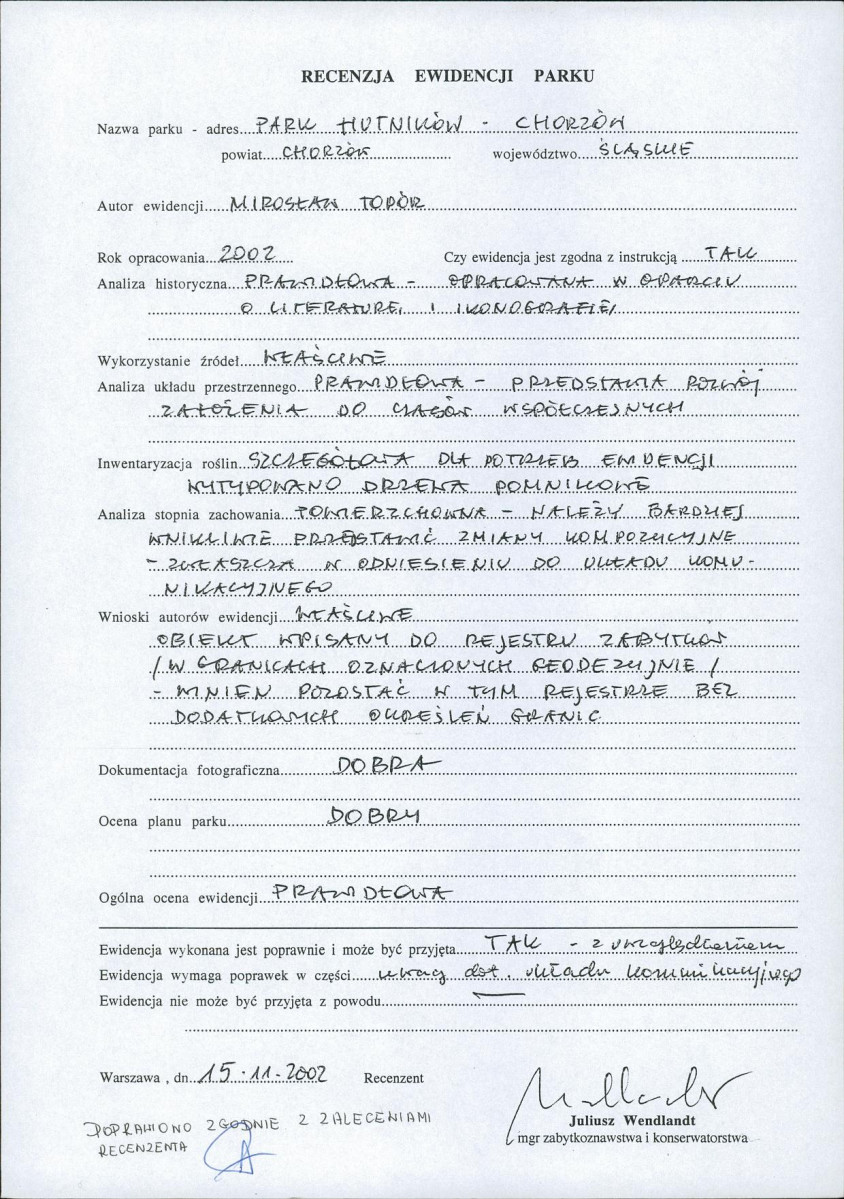 RECENZJA EWIDENCJI PARKU
Nazwa parku - adres....PARK HUTNIKÓW - CHORZÓW
powiat...CHORZÓW województwo...ŚLĄSKIE
Autor ewidencji....MIROSŁAW TOPÓR
Rok opracowania...2002 Czy ewidencja jest zgodna z instrukcją ...TAK
Analiza historyczna...PRAWIDŁOWA - OPRACOWANA W OPARCIU
O LITERATURĘ I IKONOGRAFIĘ
Wykorzystanie źródeł...WŁAŚCIWE
Analiza układu przestrzennego...PRAWIDŁOWA - PRZEDSTAWIA ROZWÓJ
ZAŁOŻENIA DO CZASÓW WSPÓŁCZESNYCH
Inwentaryzacja roślin...SZCZEGÓŁOWA DLA POTRZEB EWIDENCJI
WYTYPOWANO DRZEWA POMNIKOWE
Analiza stopnia zachowania...POWIERZCHOWNA - NALEŻY BARDZIEJ
WNIKLIWIE PRZEDSTAWIĆ ZMIANY KOMPOZYCYJNE
- ZWŁASZCZA W ODNIESIENIU DO UKŁADU KOMU-
NIKACYJNEGO
Wnioski autorów ewidencji...WŁAŚCIWE
OBIEKT WPISANY DO REJESTRU ZABYTKÓW
/W GRANICACH OZNACZONYCH GEODEZYJNIE/
- WINIEN POZOSTAĆ W TYM REJESTRZE BEZ
DODATKOWYCH OKREŚLEŃ GRANIC
Dokumentacja fotograficzna...DOBRA
Ocena planu parku...DOBRY
Ogólna ocena ewidencji...PRAWIDŁOWA
Ewidencja wykonana jest poprawnie i może być przyjęta...TAK - z uwzględnieniem
Ewidencja wymaga poprawek w części...uwag dot. układu komunikacyjnego
Ewidencja nie może być przyjęta z powodu...
Warszawa , dn...15-11-2002 Recenzent
Juliusz Wendlandt
mgr zabytkoznawstwa i konserwatorstwa
POPRAWIONO ZGODNIE Z ZALECENIAMI
RECENZENTA